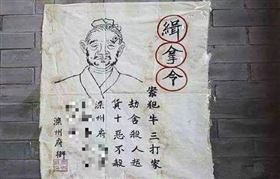 緝拿令
案犯牛三打家
劫舍殺人越
貨十惡不赦
滦州府
滦州府衙